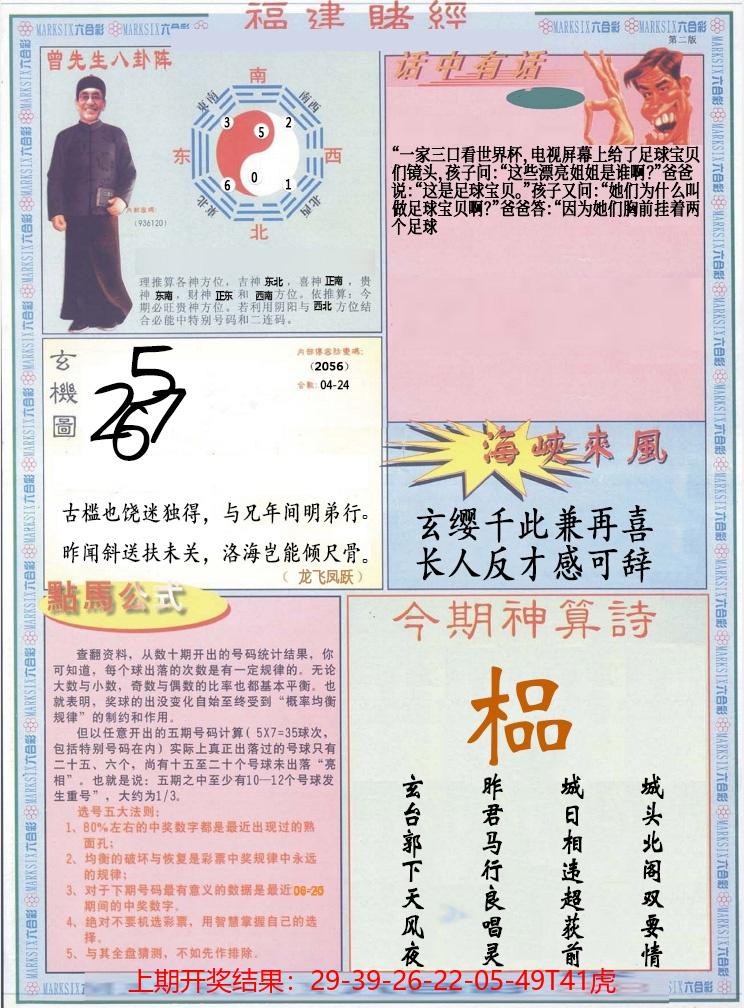 福建賭經
MARKSIX六合彩 MARKSIX六合彩 MARKSIX六合彩 MARKSIX六合彩
第二版
曾先生八卦阵
南
东南
南西
3
2
5
东
西
6
0
1
東北
北西
北
内部密碼:
(936120)
理推算各神方位，吉神 东北，喜神 正南，贵
神 东南，财神 正东 和 西南 方位。依推算：今
期必旺贵神方位。若利用阴阳与 西北 方位结
合必能中特别号码和二连码。
话中有话
“一家三口看世界杯,电视屏幕上给了足球宝贝
们镜头,孩子问:“这些漂亮姐姐是谁啊?”爸爸
说:“这是足球宝贝。”孩子又问:“她们为什么叫
做足球宝贝啊?”爸爸答:“因为她们胸前挂着两
个足球
玄機圖
5
267
(2056)
合數: 04-24
古槛也饶迷独得，与兄年间明弟行。
昨闻斜送扶未关，洛海岂能倾尺骨。
（ 龙飞凤跃）
海峽來風
玄缨千此兼再喜
长人反才感可辞
點馬公式
查翻资料，从数十期开出的号码统计结果，你
可知道，每个球出落的次数是有一定规律的。无论
大数与小数，奇数与偶数的比率也都基本平衡。也
就表明，奖球的出没变化自始至终受到“概率均衡
规律”的制约和作用。
但以任意开出的五期号码计算( 5X7=35球次，
包括特别号码在内) 实际上真正出落过的号球只有
二十五、六个，尚有十五至二十个号球未出落“亮
相”。也就是说：五期之中至少有10—12个号球发
生重号”，大约为1/3。
选号五大法则：
1、80%左右的中奖数字都是最近出现过的熟
面孔；
2、均衡的破坏与恢复是彩票中奖规律中永远
的规律；
3、对于下期号码最有意义的数据是最近06-20
期间的中奖数字。
4、绝对不要机选彩票，用智慧掌握自己的选
择。
5、与其全盘猜测，不如先作排除.
今期神算詩
榀
城头北阁双要情
城日相违超荻前
昨君马行良唱灵
玄台郭下天风夜
上期开奖结果：29-39-26-22-05-49T41虎
MARKSIX六合彩